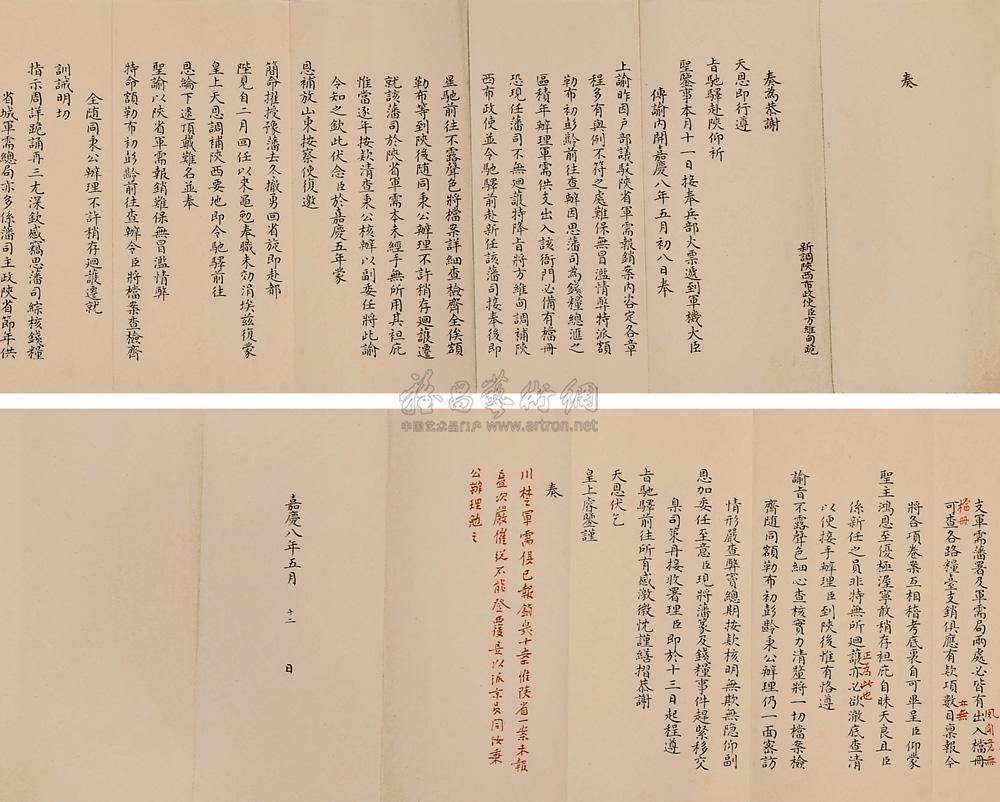 奏
新調陝西布政使臣方維甸跪
奏為恭謝
天恩即行遵
旨馳驛赴陝仰祈
聖鑒事本月十一日接奉兵部火票遞到軍機大臣
傳諭內開嘉慶八年五月初八日奉
上諭昨因戶部議駁陝省軍需報銷案內咨定各章
程多有與例不符之處難保無冒濫情弊特派額
勒布初彭齡前往查辦因思藩司為錢糧總滙之
區積年辦理軍需供支出入該衙門必備有檔冊
恐現任藩司不無迴護特降旨將方維甸調補陝
西布政使並令馳驛前赴新任該藩司接奉後即
星馳前往不露聲色將檔案詳細查檢齊全俟額
勒布等到陝後隨同秉公辦理不許稍存迴護遷
就該藩司於陝省軍需本未經手無所用其袒庇
惟當逐年按款清查秉公核辦以副委任將此諭
令知之欽此伏念臣於嘉慶五年蒙
恩補放山東按察使復邀
簡命擢授豫藩去冬撤勇回省旋即赴部
陛見自二月回任以來黽勉奉職未効涓埃茲復蒙
皇上天恩調補陝西要地即令馳驛前往
恩綸下逮頂戴難名並奉
聖諭以陝省軍需報銷難保無冒濫情弊
特命額勒布初彭齡前往查辦令臣將檔案查檢齊
全隨同秉公辦理不許稍存迴護遷就
訓誡明切
指示周詳跪誦再三尤深欽感竊思藩司綜核錢糧
省城軍需總局亦多係藩司主政陝省節年供
支軍需藩署及軍需局兩處必皆有出入檔冊
風聞竟無
檔冊
可查各路糧臺支銷俱應有款項數目稟報今
亦無
將各項卷案互相稽考底裏自可畢呈臣仰蒙
聖主鴻恩至優極渥寧敢稍存袒庇自昧天良且臣
係新任之員非特無所迴護亦必欲澈底查清
正為此也
以便接手辦理臣到陝後惟有恪遵
諭旨不露聲色細心查核實力清釐將一切檔案檢
齊隨同額勒布初彭齡秉公辦理仍一面密訪
情形嚴查弊竇總期按款核明無欺無隱仰副
恩加委任至意臣現將藩篆及錢糧事件趕緊移交
臬司策丹接收署理臣即於十三日起程遵
旨馳驛前往所有感激微忱謹繕摺恭謝
天恩伏乞
皇上睿鑒謹
奏
川楚軍需俱已報銷幾十案惟陝省一案未報
公辦理勉之
嘉慶八年五月 十二 日
雅昌藝術網
中国艺术品门户 www.artron.net